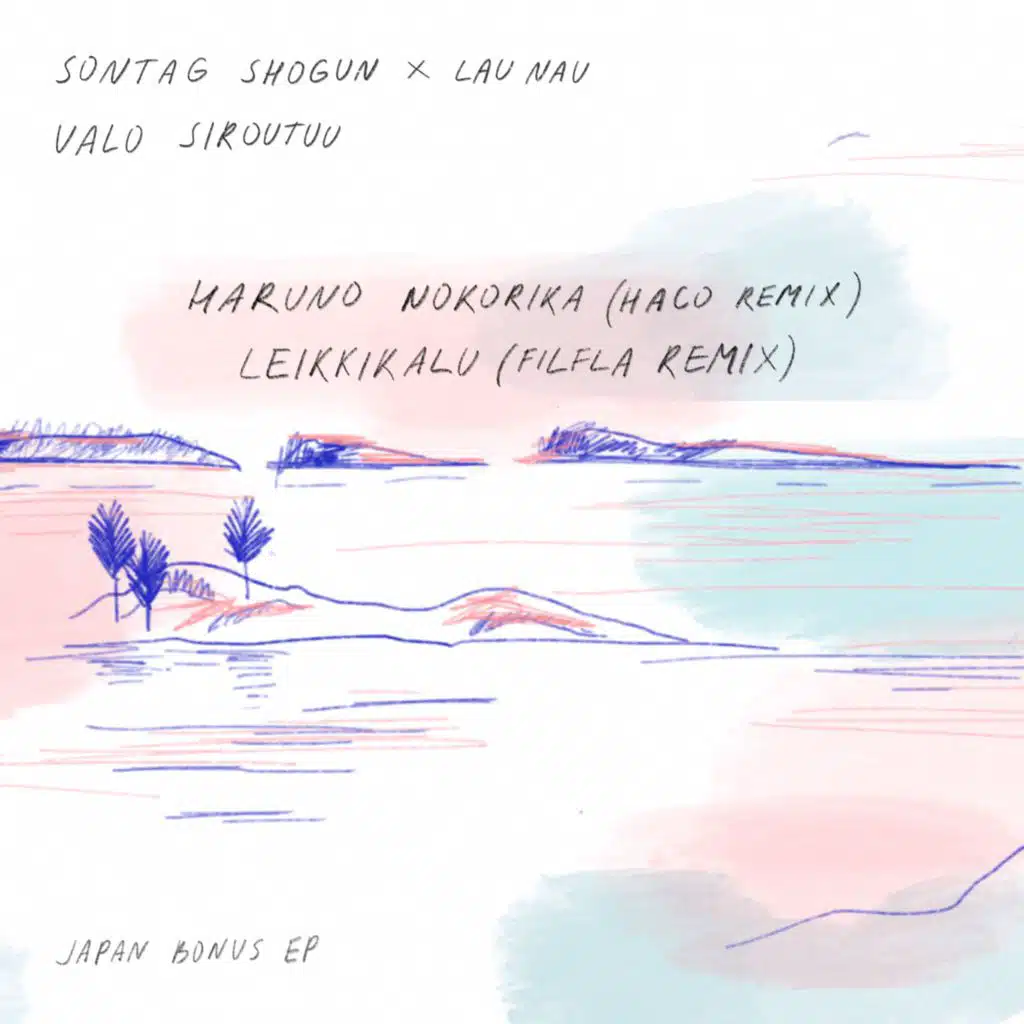 SONTAG SHOGUN × LAU NAU
VALO SIROUTUU
MARUNO NOKORIKA (HACO REMIX)
LEIKKIKALU (FILFLA REMIX)
JAPAN BONUS EP